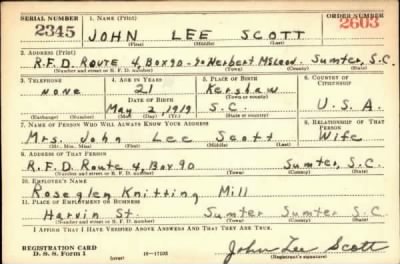 SERIAL NUMBER 1. NAME (Print) ORDER NUMBER
2345 JOHN LEE SCOTT 2603
(First) (Middle) (Last)
2. ADDRESS (Print)
R.F.D. ROUTE 4, BOX 90 - % Herbert McLeod. Sumter, S.C.
(Number and street or R. F. D. number) (Town) (County) (State)
3. TELEPHONE 4. AGE IN YEARS 5. PLACE OF BIRTH 6. COUNTRY OF CITIZENSHIP
none 21 Kershaw
DATE OF BIRTH (Town or county)
May 2, 1919 S.C. U.S.A.
(Exchange) (Number) (Mo.) (Day) (Yr.) (State or country)
7. NAME OF PERSON WHO WILL ALWAYS KNOW YOUR ADDRESS 8. RELATIONSHIP OF THAT PERSON
Mrs. John Lee Scott Wife
(Mr., Mrs., Miss) (First) (Middle) (Last)
9. ADDRESS OF THAT PERSON
R.F.D. Route 4, Box 90 Sumter, S.C.
(Number and street or R. F. D. number) (Town) (County) (State)
10. EMPLOYER'S NAME
Roseglen Knitting Mill
11. PLACE OF EMPLOYMENT OR BUSINESS
Harvin St. Sumter Sumter S.C.
(Number and street or R. F. D. number) (Town) (County) (State)
I AFFIRM THAT I HAVE VERIFIED ABOVE ANSWERS AND THAT THEY ARE TRUE.
REGISTRATION CARD
D. S. S. Form 1 (over) 16—17105 John Lee Scott
(Registrant's signature)